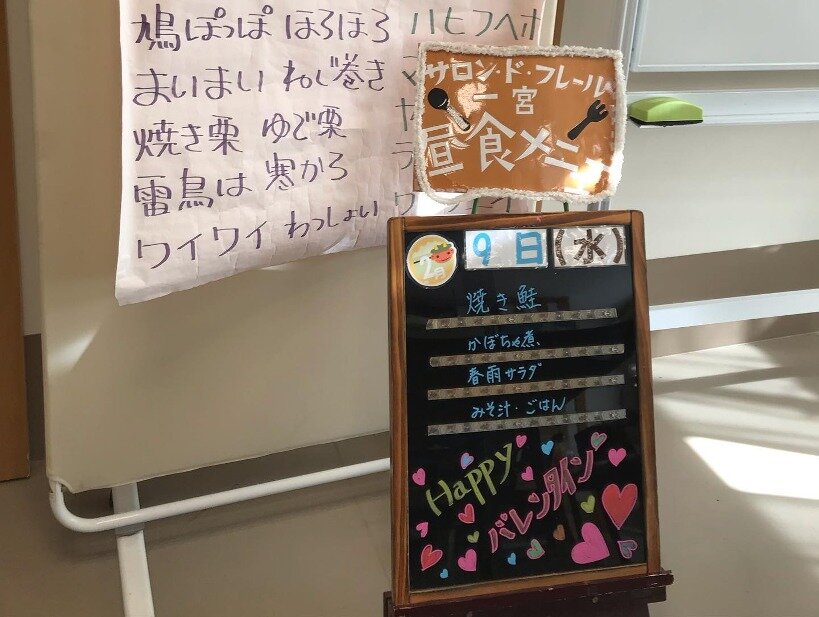 鳩ぽっぽ ほろほろ
まいまい ねじ巻き
焼き栗 ゆで栗
雷鳥は 寒かろ
ワイワイ わっしょい
ハヒフヘホ
サロン・ド・フレール
一宮
昼食メニュー
2月 9日(水)
焼き鮭
かぼちゃ煮
春雨サラダ
みそ汁・ごはん
Happy
バレンタイン